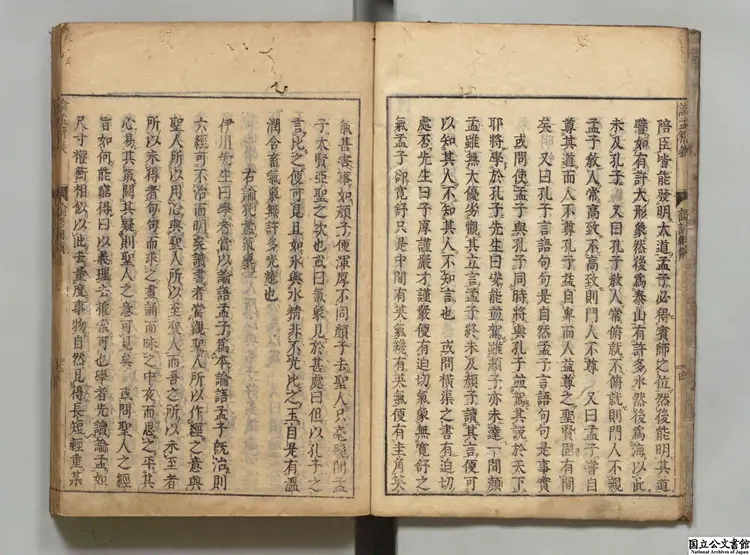 陪臣皆能發明大道孟子必得賓師之位然後能明其道
譬如有許大形象然後為泰山有許多水然後為海以此
未及孔子 又曰孔子敎人常俯就不俯就則門人不親
孟子敎人常高致不高致則門人不尊 又曰孟子嘗自
尊其道而人不尊孔子益自卑而人益尊之聖賢固有間
矣 又曰孔子言語句句是自然孟子言語句句是事實
或問使孟子與孔子同時將與孔子並駕其說於天下
耶將學於孔子先生曰安能並駕雖顏子亦未達一間顏
孟雖無大優劣觀其立言孟子終未及顏子讀其言便可
以知其人不知其人不知言也 或問橫渠之書有迫切
處否先生曰子厚謹嚴才謹嚴便有迫切氣象無寬舒之
氣孟子卻寬舒只是中間有英氣纔有英氣便有圭角英
氣甚害事如顏子便渾厚不同顏子去聖人只毫髮間孟
子大賢亞聖之次也或曰氣象見於甚處曰但以孔子之
言比之便可見且如冰與水精非不光比之玉自是有溫
潤含蓄氣象無許多光耀也
右論孔孟氣象
伊川先生曰學者當以論語孟子爲本論語孟子既治則
六經可不治而明矣讀書者當觀聖人所以作經之意與
聖人所以用心與聖人所以至聖人而吾之所以未至者
所以未得者句句而求之晝誦而味之中夜而思之平其
心易其氣闕其疑則聖人之意可見矣 或問聖人之經
旨如何能窮得曰以義理去推索可也學者先讀論孟如
尺寸權衡相似以此去量度事物自然見得長短輕重某
国立公文書館
National Archives of Japan